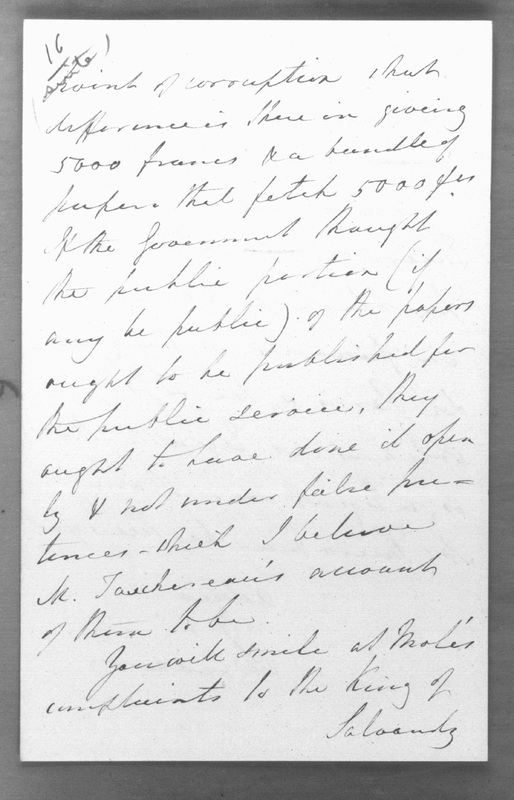 16
point of corruption what
difference is there in giving
5000 francs & a bundle of
papers that fetch 5000 frs
If the Government thought
the public portion (if
any be public) of the papers
ought to be published for
the public service, they
ought to have done it open
ly & not under false pre=
tences - which I believe
M. Taschereau's account
of them to be.
You will smile at Molé's
complaints to the King of
Salvandy